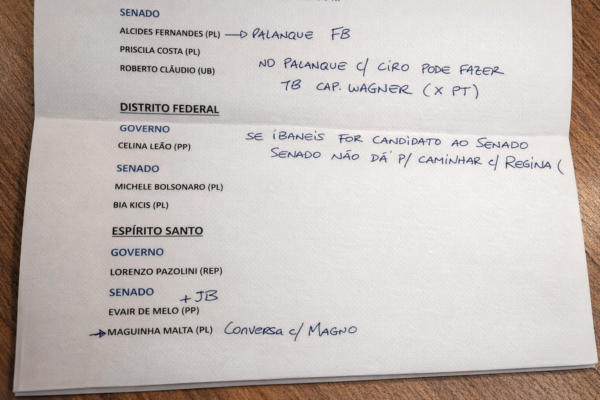 SENADO
ALCIDES FERNANDES (PL) → PALANQUE FB
PRISCILA COSTA (PL)
ROBERTO CLÁUDIO (UB)
NO PALANQUE C/ CIRO PODE FAZER
TB CAP. WAGNER (X PT)
DISTRITO FEDERAL
GOVERNO
CELINA LEÃO (PP)
SE IBANEIS FOR CANDIDATO AO SENADO
SENADO NÃO DÁ P/ CAMINHAR C/ REGINA (
SENADO
MICHELE BOLSONARO (PL)
BIA KICIS (PL)
ESPÍRITO SANTO
GOVERNO
LORENZO PAZOLINI (REP)
SENADO + JB
EVAIR DE MELO (PP)
→ MAGUINHA MALTA (PL) CONVERSA C/ MAGNO